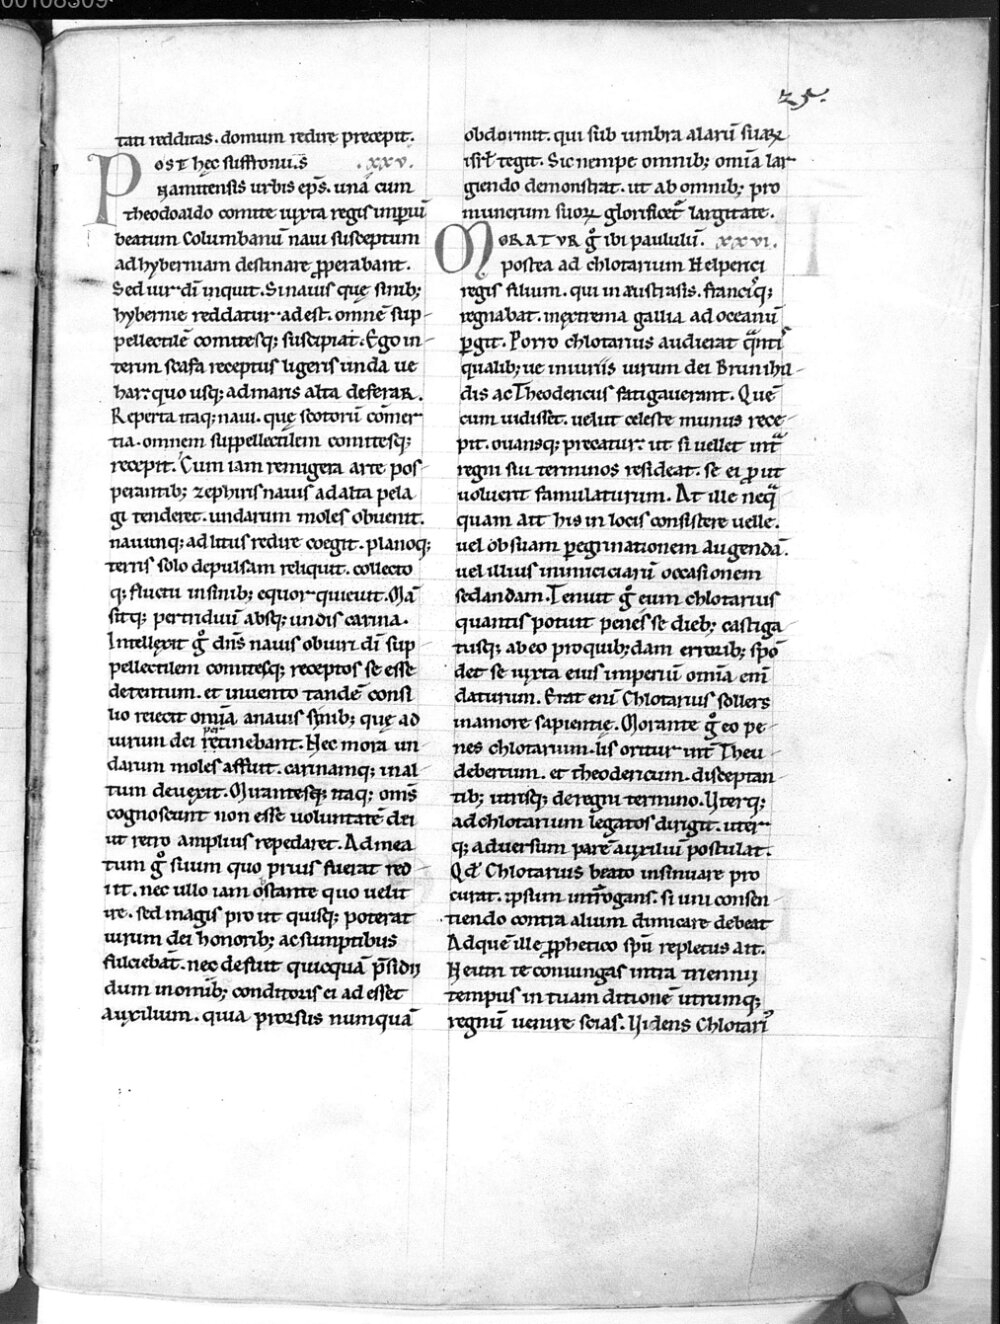 00108309
25.
tati redditas. domum redire precepit.
Post hęc suffroniu.s .xxv.
namitensis urbis ep̄s. una cum
theodoaldo comite iuxta regis imꝑiū
beatum Columbanū naui susceptum
ad hyberniam destinare ꝓperabant.
Sed uir dī inquit. Si nauis quę sinib;
hybernię reddatur adest. omnē sup-
pellectilē comitesq; suscipiat. Ego in-
terim scafa receptus ligeris unda ue
har. quo usq; ad maris alta deferar.
Reperta itaq; naui. quę scotorū cōmer-
tia. omnem suppellectilem comitesq;
recepit. Cum iam remigera arte pos-
perantib; zephiris nauis ad alta pela
gi tenderet. undarum moles obuenit.
nauimq; ad litus redire coegit. planoq;
terris solo depulsam reliquit. collecto
q; fluctu in sinib; equor quieuit. Mā
sitq; per triduū absq; undis carina.
Intellexit g̊ dn̄s nauis obuiri dī sup-
pellectilem comitesq; receptos se esse
detentum. et inuento tandē consi
lio reiecit om̄ia a nauis sinib; quę ad
uirum dei pertinebant. Hec mora un-
darum moles affuit. carinamq; in al-
tum deuexit. Mirantesq; itaq; om̄s
cognoscunt non esse uoluntatē dei
ut retro amplius repedaret. Ad mea
tum g̊ suum quo prius fuerat red
iit. nec ullo iam ostante quo uelit
ire. sed magis prout quisq; poterat
uirum dei honorib; ac sumptibus
fulciebat. nec defuit quicquā p̄sidii
dum in om̄ib; conditoris ei adesset
auxilium. quia prorsus numquā
obdormit. qui sub umbra alarū suaꝝ
isrl̄ tegit. Sic nempe omnib; om̄ia lar-
giendo demonstrat. ut ab omnib; pro
munerum suoꝝ glorificet̄ largitate.
Moratur g̊ ibi paululū. xxvi.
postea ad chlotarium Helperici
regis filium. qui in austrasis. franciq;
regnabat. in extrema gallia ad oceanū
ꝑgit. Porro chlotarius audierat q̄nti
qualib; ue iniuriis uirum dei Brunihil-
dis ac Theodericus fatigauerant. Quē
cum uidisset. uelut celeste munus rece-
pit. ouansq; precatur. ut si uellet int̄
regni sui terminos resideat. se ei ꝓut
uoluerit famulaturum. At ille neq̄
quam ait his in locis consistere uelle.
uel ob suam peregrinationem augendā.
uel illius inimiciciarū occasionem
sedandam. Tenuit g̊ eum chlotarius
quantis potuit penes se dieb; castiga
tusq; ab eo pro quib;dam errorib; spō
det se iuxta eius imperiū om̄ia em̄
daturum. Erat enī Chlotarius sollers
in amore sapientię. Morante g̊ eo pe-
nes chlotarium. lis oritur int̄ Theu-
debertum. et theodericum. disceptan-
tib; utrisq; de regni termino. Uterq;
ad chlotarium legatos dirigit. uter-
q; aduersum parē auxiliū postulat.
Qd̄ Chlotarius beato insinuare pro
curat. ipsum int̄rogans. si uni consen-
tiendo contra alium dimicare debeat
Ad quē ille ꝓphetico spū repletus ait.
Neutri te coniungas intra triennii
tempus in tuam ditionē utrumq;
regnū uenire scias. Videns Chlotari᾽